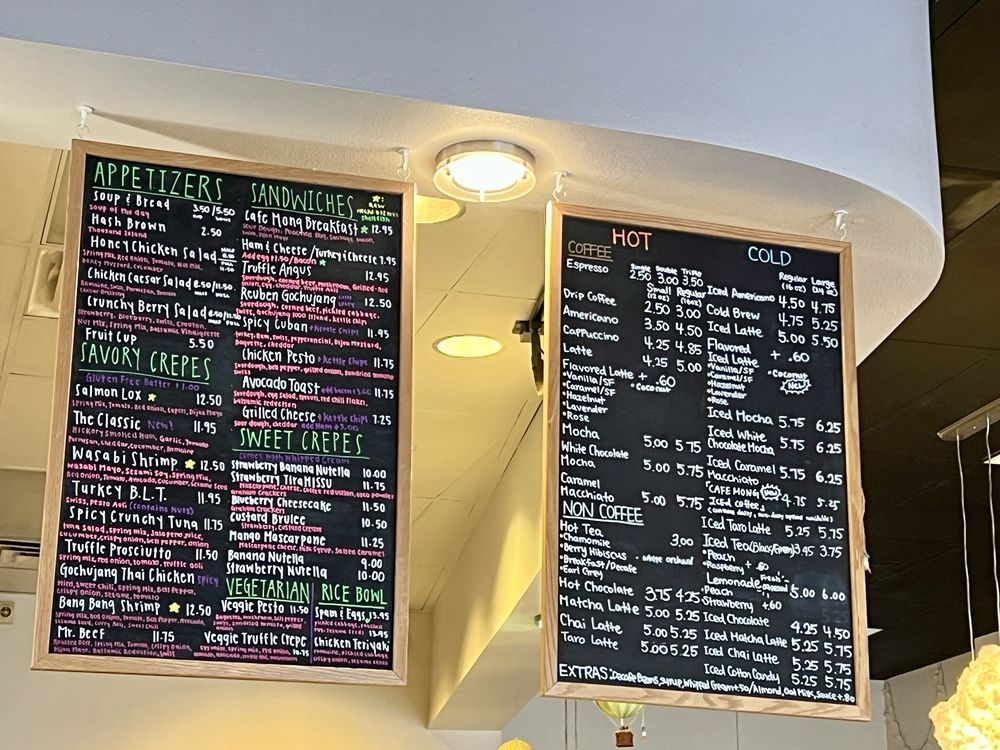 APPETIZERS
Soup & Bread 3.50/5.50
Soup of the day
Hash Brown 2.50
Thousand Island
Honey Chicken Salad
Spring Mix, Red Onion, Tomato, Nut Mix,
Honey Mustard, Cucumber
Chicken Caesar Salad 8.50/11.50
Crunchy Berry Salad 8.50/11.50
Strawberry, Blueberry, Swiss, Crouton,
Nut Mix, Spring Mix, Balsamic Vinaigrette
Fruit Cup 5.50
SAVORY CREPES
Gluten Free Batter +1.00
Salmon Lox 12.50
Spring Mix, Tomato, Red onion, Capers, Dijon Mayo
The Classic New! 11.95
Hickory Smoked Ham, Garlic, Tomato
Parmesan, cheddar, cucumber,
Wasabi Shrimp 12.50
Wasabi Mayo, Sezami Soy, Spring Mix,
Red Onion, Tomato, Avocado, Cucumber, Sesame Seed
Turkey B.L.T. 11.95
Swiss, Pesto Aoli (contains Nuts)
Spicy Crunchy Tuna 11.75
Tuna Salad, spring mix, Jalapeno, Juice,
cucumber, crispy onion, ben pepper, onion
Truffle Prosciutto 11.50
Spring mix, red onion, tomato, truffle aoli
Gochujang Thai Chicken spicy
Mint, Sweet Chili, Spring Mix, Bell Pepper,
crispy onion, Sesame, tomato
Bang Bang Shrimp 12.50
Mr. Beef 11.75
Roasted Beef, Spring Mix, Tomato, Red Onion,
Dijon Mayo, Balsamic Reduction, Swiss
SANDWICHES
New
shellfish
Cafe Mong Breakfast 12.95
Sour Dough, Poached Egg, Sausage, Bacon,
Ham & Cheese/Turkey & Cheese 7.95
Add egg 1.50/Bacon
Truffle Angus 12.95
Sourdough, corned beef, mushroom, Grilled Red
onion, egg, cheddar, Truffle Aoli
Reuben Gochujang spicy 12.50
Sourdough, corned beef, pickled cabbage,
Swiss, Gochujang 1000 Island, Kettle chip
Spicy Cuban + Kettle Chips 11.95
turkey, Ham, Swiss, Pepperoncini, Dijon Mustard,
Baguette, cheddar
Chicken Pesto + Kettle Chips 11.75
Sourdough, bell pepper, grilled onion, sundried tomato
swiss
Avocado Toast add bacon +3.00 11.75
Sourdough, egg salad, spread, red chili flakes,
balsamic reduction
Grilled Cheese + Kettle Chips 7.25
Sour dough, cheddar add Ham +3.00
SWEET CREPES
comes with whipped cream
Strawberry Banana Nutella 10.00
Strawberry TiraMISSU 11.75
Mascarpone Cheese, Coffee reduction, coco powder
Graham Crackers
Blueberry Cheesecake 11.50
Graham Crackers
Custard Brulee 10.50
Strawberry, Custard Cream
Mango Mascarpone 11.25
Mascarpone Cheese, Milk Syrup, Salted Caramel
Banana Nutella 9.00
Strawberry Nutella 10.00
VEGETARIAN
Veggie Pesto 11.50
Veggie Truffle Crepe 10.75
RICE BOWL
Spam & Eggs 13.95
pickled cabbage,
Chicken Teriyaki 13.95
romaine, pickled cabbage
crispy onion, sesame seeds
HOT
COFFEE
Single Double Triple
Espresso 2.50 3.00 3.50
Small (12oz) Regular (16oz)
Drip Coffee 2.50 3.00
Americano 3.50 4.50
Cappuccino 4.25 4.85
Latte 4.25 5.00
Flavored Latte + .60
•Vanilla/SF •Coconut
•Caramel/SF
•Hazelnut
•Lavender
•Rose
Mocha 5.00 5.75
White Chocolate
Mocha 5.00 5.75
Caramel
Macchiato 5.00 5.75
NON COFFEE
Hot Tea 3.00
•Chamomile
•Berry Hibiscus •white orchard
•Breakfast/Decafe
•Earl Grey
Hot Chocolate 3.75 4.25
Matcha Latte 5.00 5.25
Chai Latte 5.00 5.25
Taro Latte 5.00 5.25
COLD
Regular (16oz) Large (24oz)
Iced Americano 4.50 4.75
Cold Brew 4.75 5.25
Iced Latte 5.00 5.50
Flavored + .60
Iced Latte
•Vanilla/SF •Coconut
•Caramel/SF New
•Hazelnut
•Lavender
•Rose
Iced Mocha 5.75 6.25
Iced White
Chocolate Mocha 5.75 6.25
Iced Caramel
Macchiato 5.75 6.25
"CAFE MONG New
Iced Coffee" 4.75 5.25
Iced Taro Latte 5.25 5.75
Iced Tea (Black/Green) 3.45 3.75
•Peach
•Raspberry + .60
Lemonade Fresh-squeezed 5.00 6.00
•Peach
•Strawberry +.60
Iced Chocolate 4.25 4.50
Iced Matcha Latte 5.25 5.75
Iced Chai Latte 5.25 5.75
Iced Cotton Candy 5.25 5.75
EXTRAS: Decafe Beans, Syrup, Whipped Cream +.50/Almond, Oat Milk, Sauce +.80